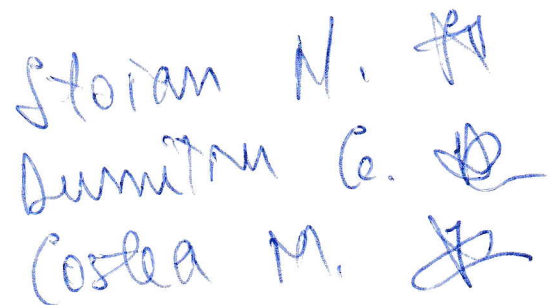 Stoian N.
Dumitru C.
Costea M.